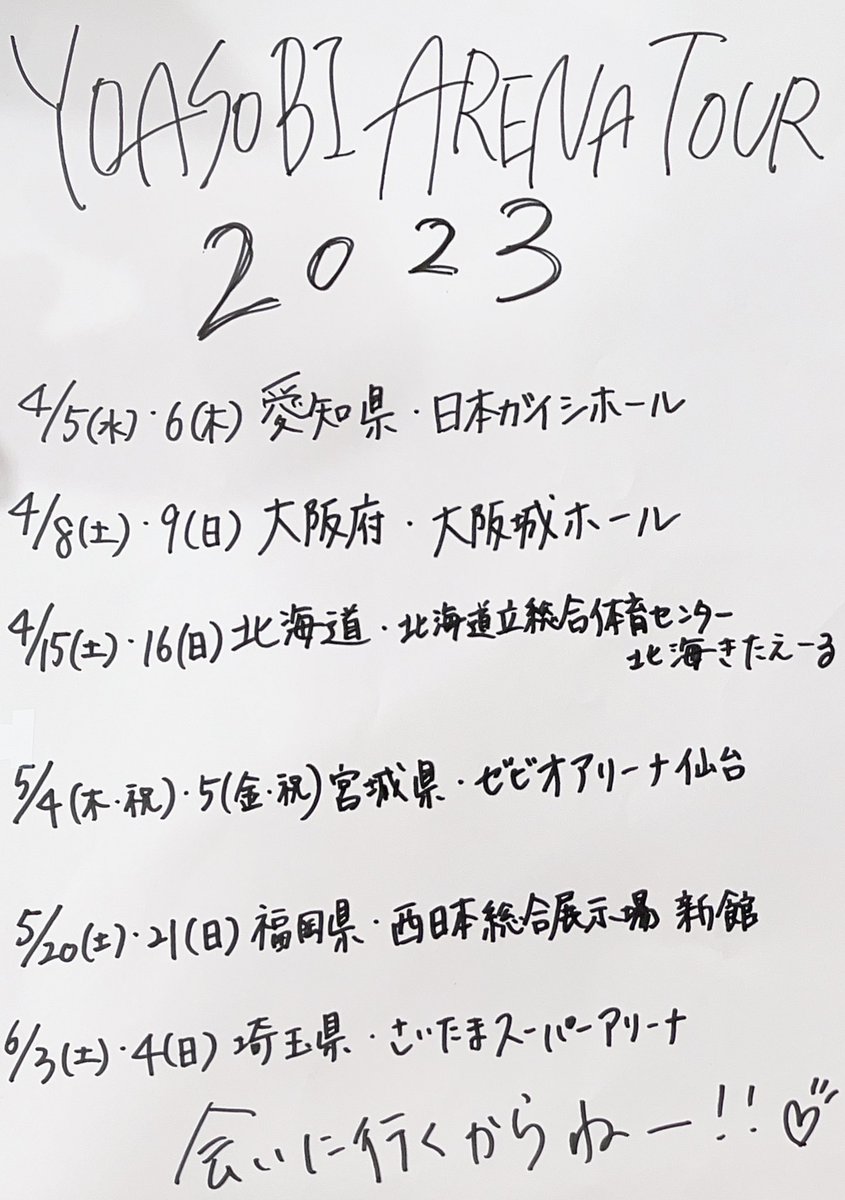 YOASOBI ARENA TOUR
2023
4/5(水)・6(木) 愛知県・日本ガイシホール
4/8(土)・9(日) 大阪府・大阪城ホール
4/15(土)・16(日) 北海道・北海道立総合体育センター
北海きたえーる
5/4(木・祝)・5(金・祝) 宮城県・ゼビオアリーナ仙台
5/20(土)・21(日) 福岡県・西日本総合展示場 新館
6/3(土)・4(日) 埼玉県・さいたまスーパーアリーナ
会いに行くからねー!!♡